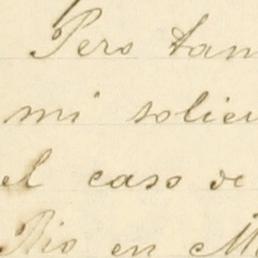 Pero tam
mi solici
el caso de
Rio en M